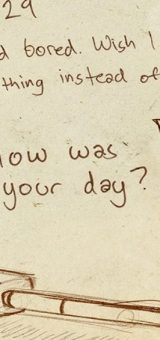 29
d bored. Wish I
thing instead of
How was
your day?